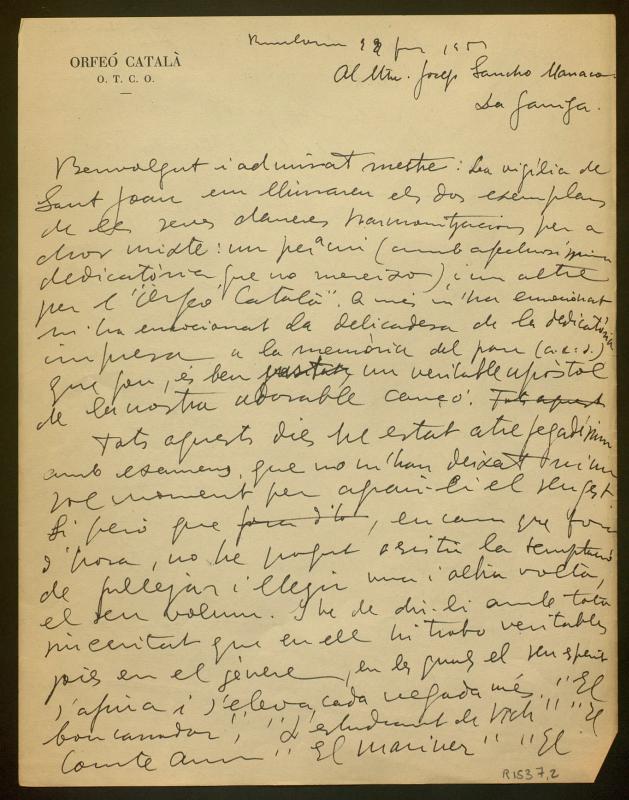 ORFEÓ CATALÀ
O. T. C. O.
Al Mtre. Josep Sancho Marraco
La Garriga.
Benvolgut i admirat mestre: La vigilia de
Sant Joan em lliuraren els dos exemplars
de les seves darreres harmonitzacions per a
chor mixte: un per a mi (amb afectuosíssima
dedicatòria que no mereixo), i un altre
per l'"Orfeó Català". A més m'ha emocionat
m'ha emocionat la delicadesa de la dedicatòria
impresa a la memòria del pare (a.c.s.)
que fou, és ben un veritable apòstol
de la nostra adorable cançó. Tots aquest
Tots aquests dies he estat atrafegadíssim
amb examens, que no m'han deixat ni un
sol moment per agrair-li el seu gest
Si però que , encara que fora
d'hora, no he pogut resistir la temptació
de fullejar i llegir una i altra volta,
el seu volum. I he de dir-li amb tota
sinceritat que en ell hi trobo veritables
joies en el gènere, en les quals el seu esperit
s'afina i s'eleva cada vegada més. "El
bon caçador", "L'estudiant de Vich" "El
Comte Arnau" "El mariner" "El
R1537,2